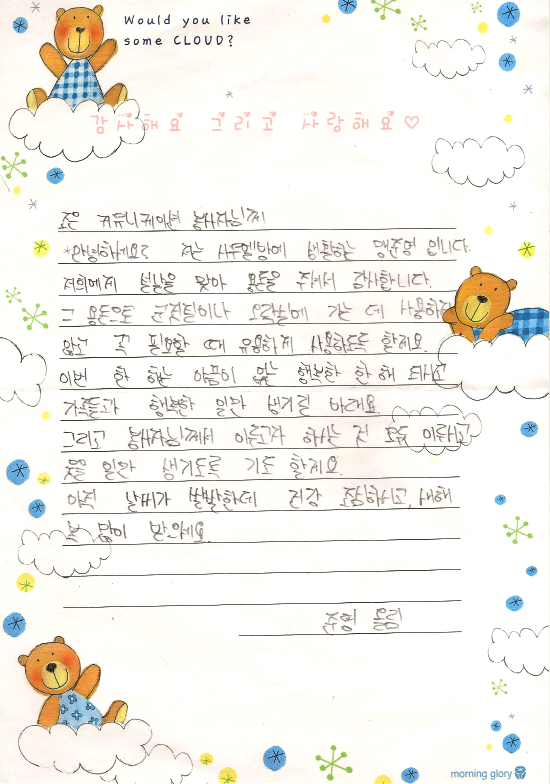 Would you like
some CLOUD?
감사해요 그리고 사랑해요♡
좋은 커뮤니케이션 봉사자님께
*안녕하세요? 저는 사무엘방에 생활하는 맹준영 입니다.
저희에게 설날을 맞아 용돈을 주셔서 감사합니다.
그 용돈으로 군것질이나 오락실에 가는 데 사용하지
않고 꼭 필요할 때 유용하게 사용하도록 할게요.
이번 한 해는 아픔이 없는 행복한 한 해 되시고
가족들과 행복한 일만 생기길 바래요.
그리고 봉사자님께서 이루고자 하시는 것 모두 이루시고
좋은 일만 생기도록 기도 할게요.
아직 날씨가 쌀쌀한데 건강 조심하시고, 새해
복 많이 받으세요.
준영 올림
morning glory